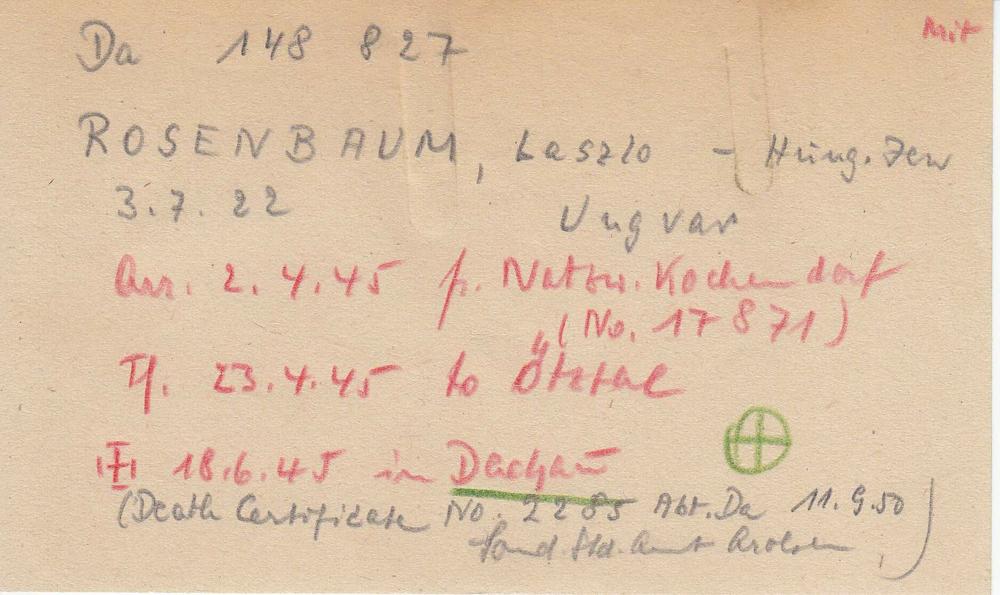 Mit
Da 148 827
ROSENBAUM, Laszlo - Hung. Jew
3.7.22 Ungvar
Arr. 2.4.45 fr. Natzw. Kochendorf
(No. 17871)
Tf. 23.4.45 to "Ötztal
18.6.45 in Dachau
(Death Certificate No. 2285 Abt. Da 11.9.50
Sond. Std. Amt Arolsen)